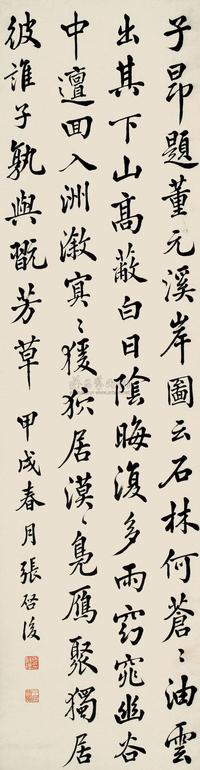 子昂題董元溪岸圖云石林何蒼〻油雲
出其下山高蔽白日陰晦復多雨窈窕幽谷
中邅回入洲漵冥〻猨狖居漠〻鳧雁聚獨居
彼誰子孰與翫芳草甲戌春月張啓後